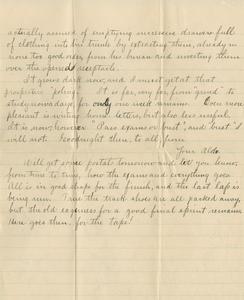 actually accused of emptying successive drawers full
of clothing into his trunk by extracting them, already in
none too good order from his bureau and inverting them
over the opened receptacle.
It grows dark now, and I must get at that
prospective "polling". It is far, very far from "grind" to
study nowadays, for only one week remains. Even more
pleasant is writing home letters, but also less useful.
It is now however "I ace exams or bust", and "bust" I
will not. Goodnight then, to all, from
Your Aldo.
Will get some postal tomorrow and let you know,
from time to time, how the exams and everything goes
All is in good shape for the finish, and the last lap is
being run. True the track shoes are all packed away,
but the old eagerness for a good final sprint remains
Here goes then, for the tape!